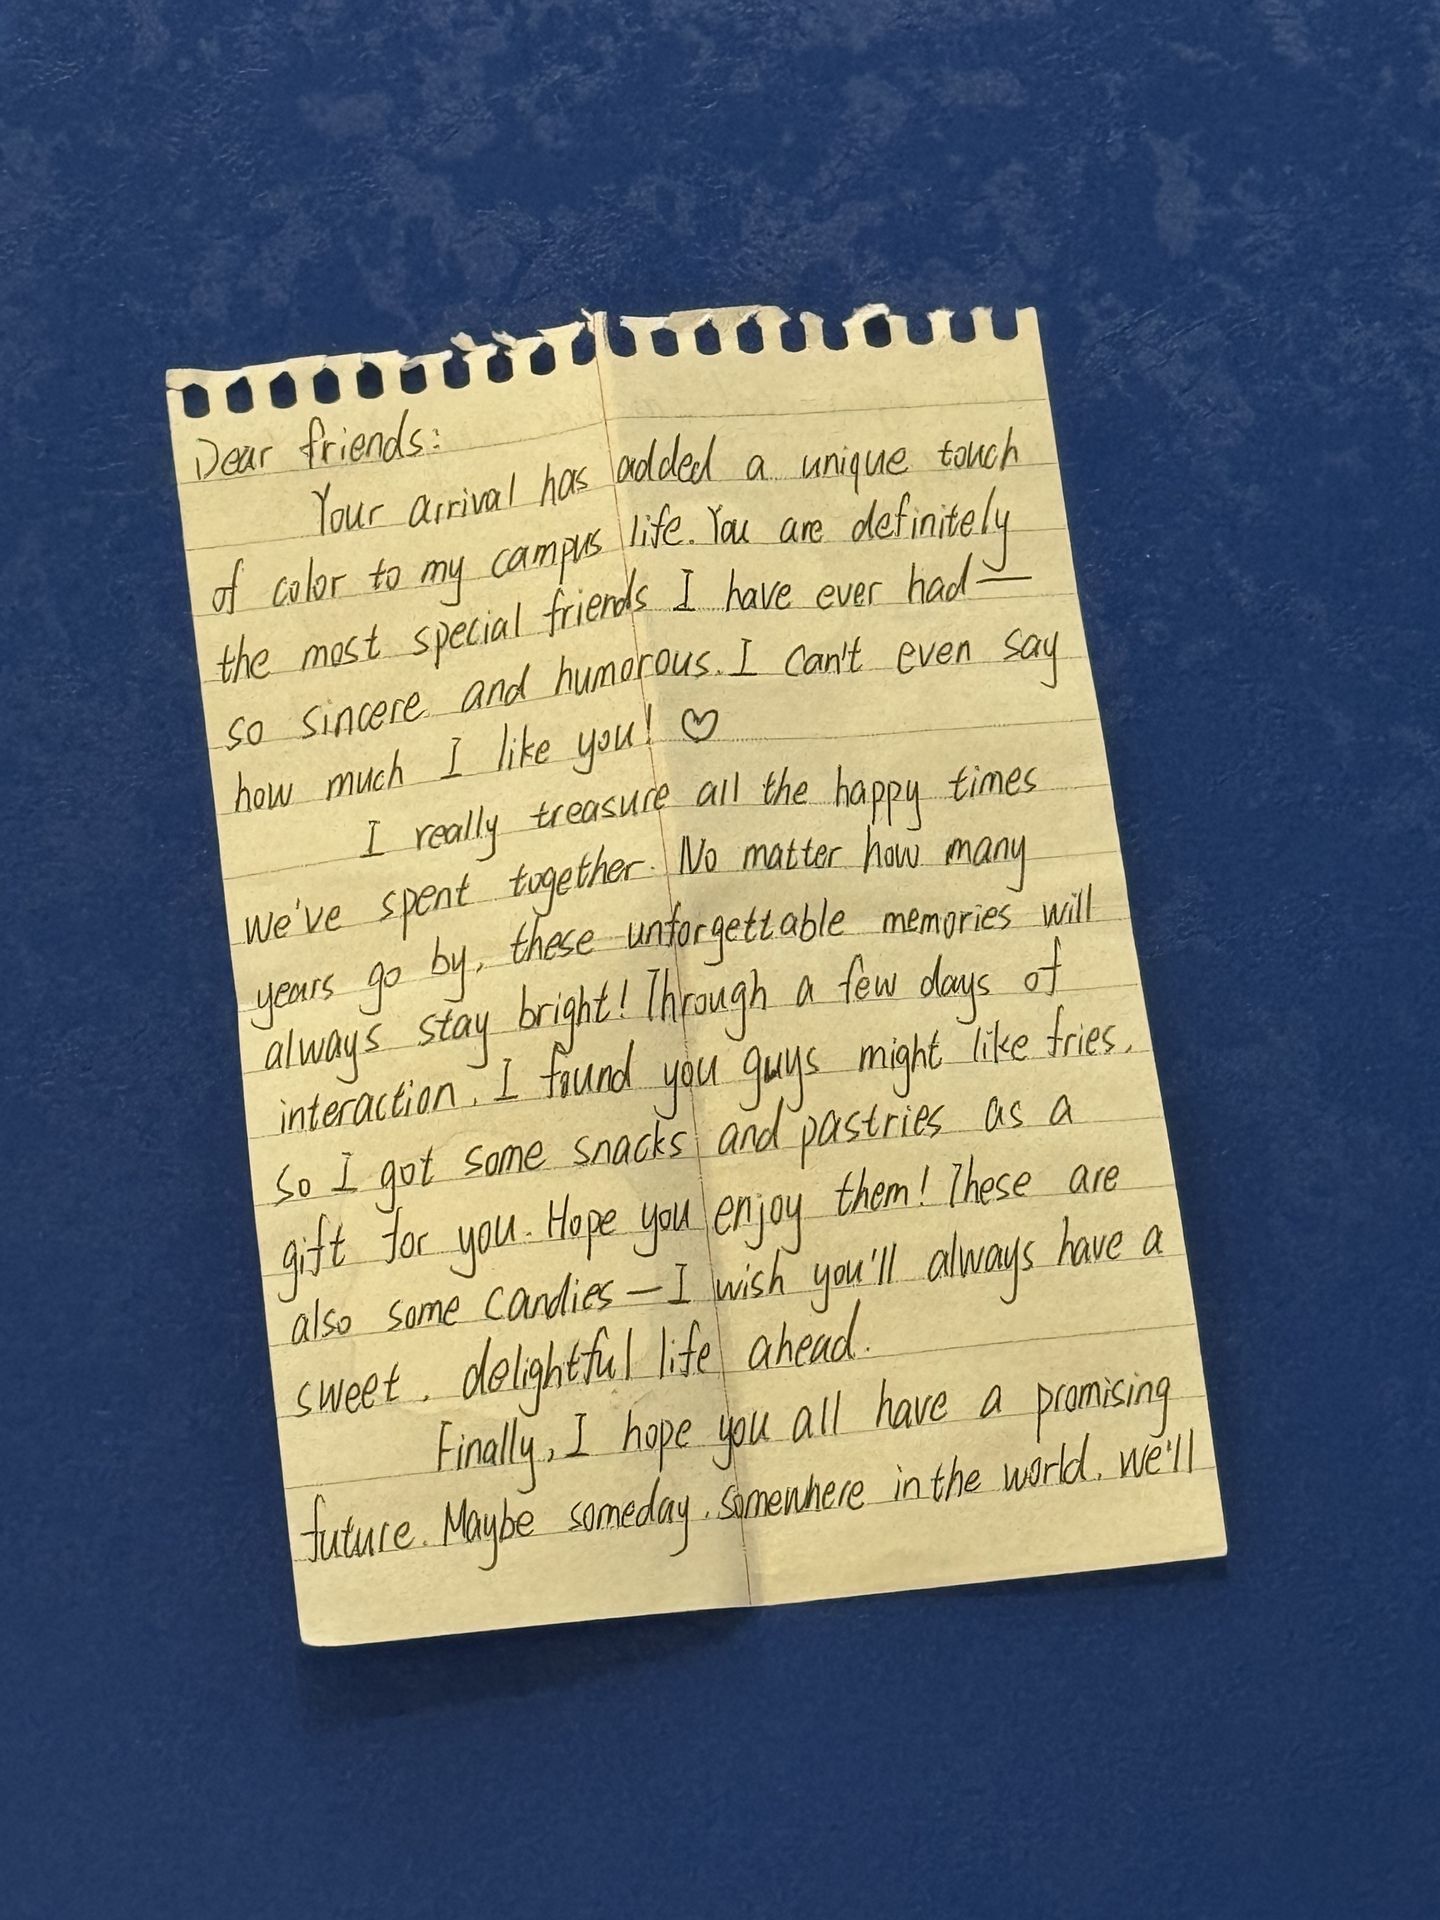 Dear friends:
Your arrival has added a unique touch
of color to my campus life. You are definitely
the most special friends I have ever had—
so sincere and humorous. I can't even say
how much I like you! ♡
I really treasure all the happy times
we've spent together. No matter how many
years go by, these unforgettable memories will
always stay bright! Through a few days of
interaction, I found you guys might like fries,
so I got some snacks and pastries as a
gift for you. Hope you enjoy them! These are
also some candies—I wish you'll always have a
sweet, delightful life ahead.
Finally, I hope you all have a promising
future. Maybe someday, somewhere in the world, we'll